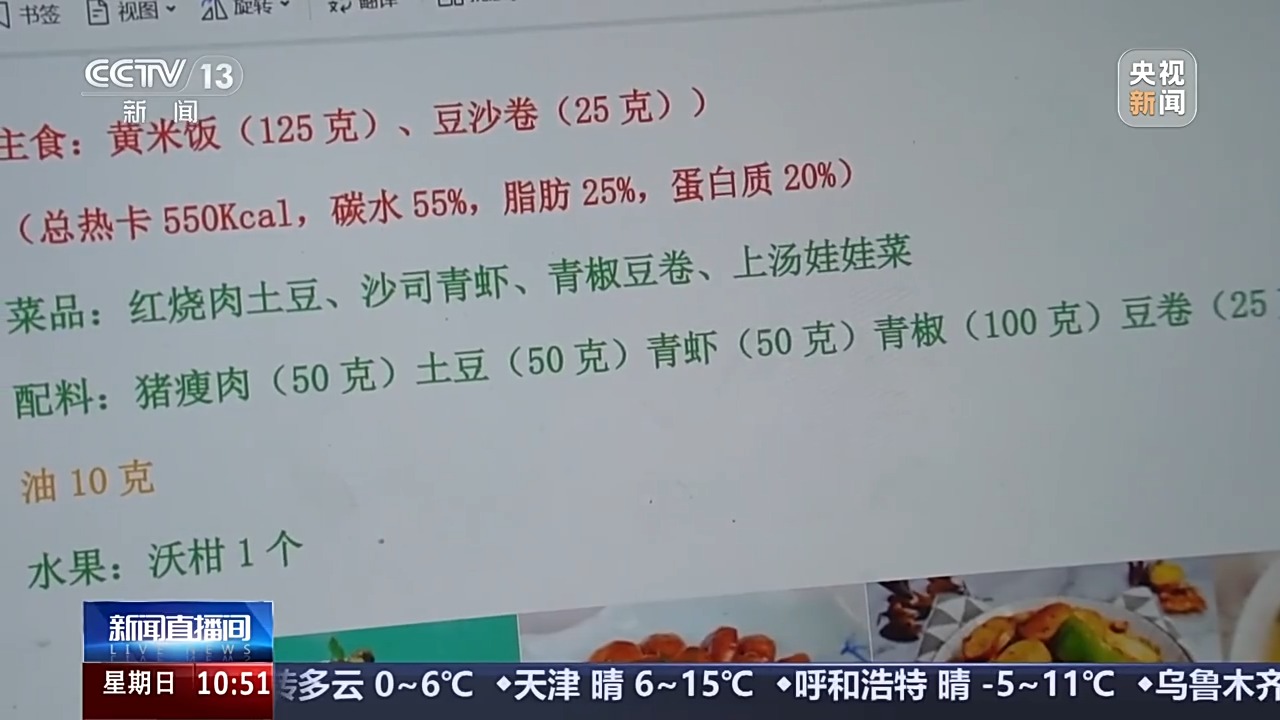 书签 视图 旋转 翻译
CCTV 13
新闻
央视
新闻
主食：黄米饭（125 克）、豆沙卷（25 克））
（总热卡 550Kcal，碳水 55%，脂肪 25%，蛋白质 20%）
菜品：红烧肉土豆、沙司青虾、青椒豆卷、上汤娃娃菜
配料：猪瘦肉（50 克）土豆（50 克）青虾（50 克）青椒（100 克）豆卷（25
油 10 克
水果：沃柑 1 个
新闻直播间
LIVE NEWS
星期日 10:51
转多云 0~6℃ ◆天津 晴 6~15℃ ◆呼和浩特 晴 -5~11℃ ◆乌鲁木齐